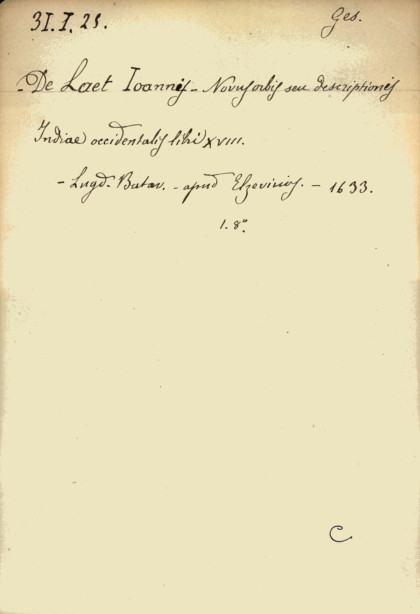 31.I.25.
Ges.
De Laet Ioannis - Novus orbis seu descriptionis
Indiae occidentalis libri XVIII.
- Lugd. Batav. - apud Elzevirios. - 1633.
1. 8°
C